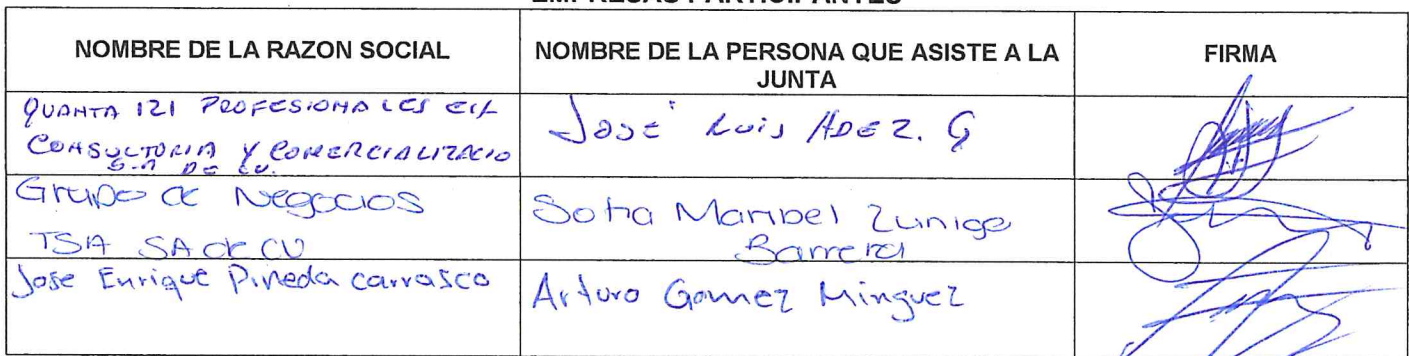 EMPRESAS PARTICIPANTES
NOMBRE DE LA RAZON SOCIAL
NOMBRE DE LA PERSONA QUE ASISTE A LA
JUNTA
FIRMA
QUANTA 121 PROFESIONALES EN
CONSULTORIA Y COMERCIALIZACIO
S.A DE CV.
José Luis HDEZ. G
Grupo de Negocios
TSA SA de CV
Sofia Maribel Zuniga
Barrera
Jose Enrique Pineda Carrasco
Arturo Gomez Minguez